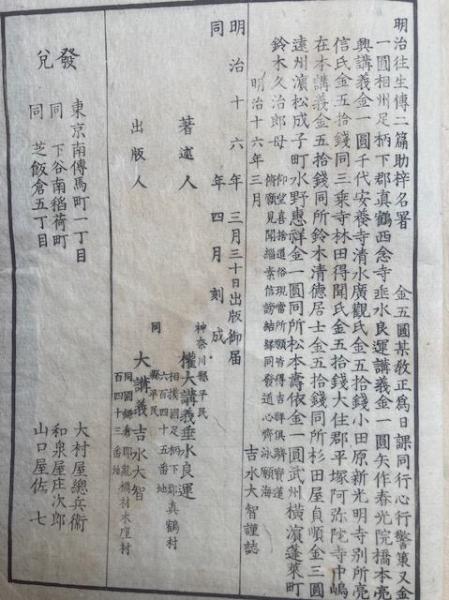 明治往生傳二篇助梓名署　金五圓某教正為日課同行心行警策又金
一圓相州足柄下郡真鶴西念寺垂水良運講義金一圓矢作春光院橋本亮
興講義金一圓千代安養寺清水廣觀氏金五拾錢小田原新光明寺別所亮
信氏金五拾錢同三乗寺林田得聞氏金五拾錢大住郡平塚阿弥陀寺中嶋
在本講義金五拾錢同所鈴木清德居士金五拾錢同所杉田屋貞順金三圓
遠州濵松成子町水野惠祥金一圓同所松本壽依金一圓武州横濵蓬莱町
鈴木久治郎母
仰望喜捨道俗現當所願皆得吉祥俱
見聞緇素信謗結縁同發道心齊泳願海
明治十六年三月　吉水大智謹誌
明治十六年三月三十日出版御届
同年四月刻成
著述人
神奈川縣平民
權大講義垂水良運
相摸國足柄下郡真鶴村
六百四十五番地
出版人
同縣平民
大講義吉水大智
百四十三番地
發兌
東京南傳馬町一丁目　大村屋總兵衞
同　下谷南稻荷町　和泉屋庄次郎
同　芝飯倉五丁目　山口屋佐七